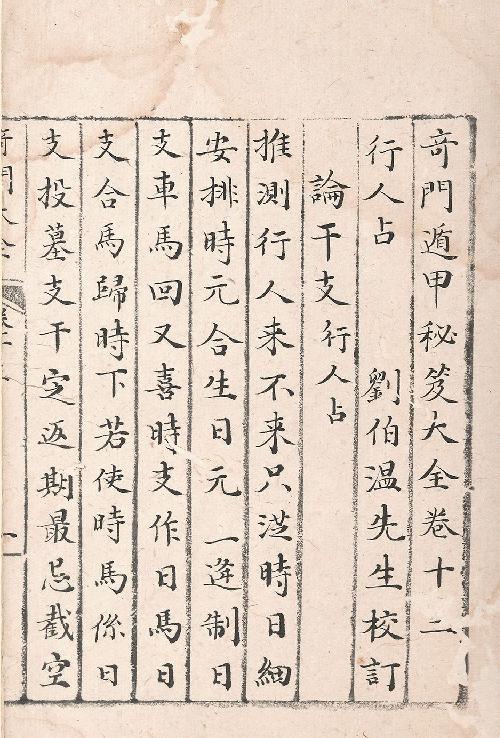 奇門遁甲秘笈大全卷十二
行人占 劉伯温先生校訂
論干支行人占
推測行人来不来只从時日細
安排時元合生日元一逢制日
支車馬回又喜時支作日馬日
支合馬歸時下若使時馬係日
支投墓支干定返期最忌截空